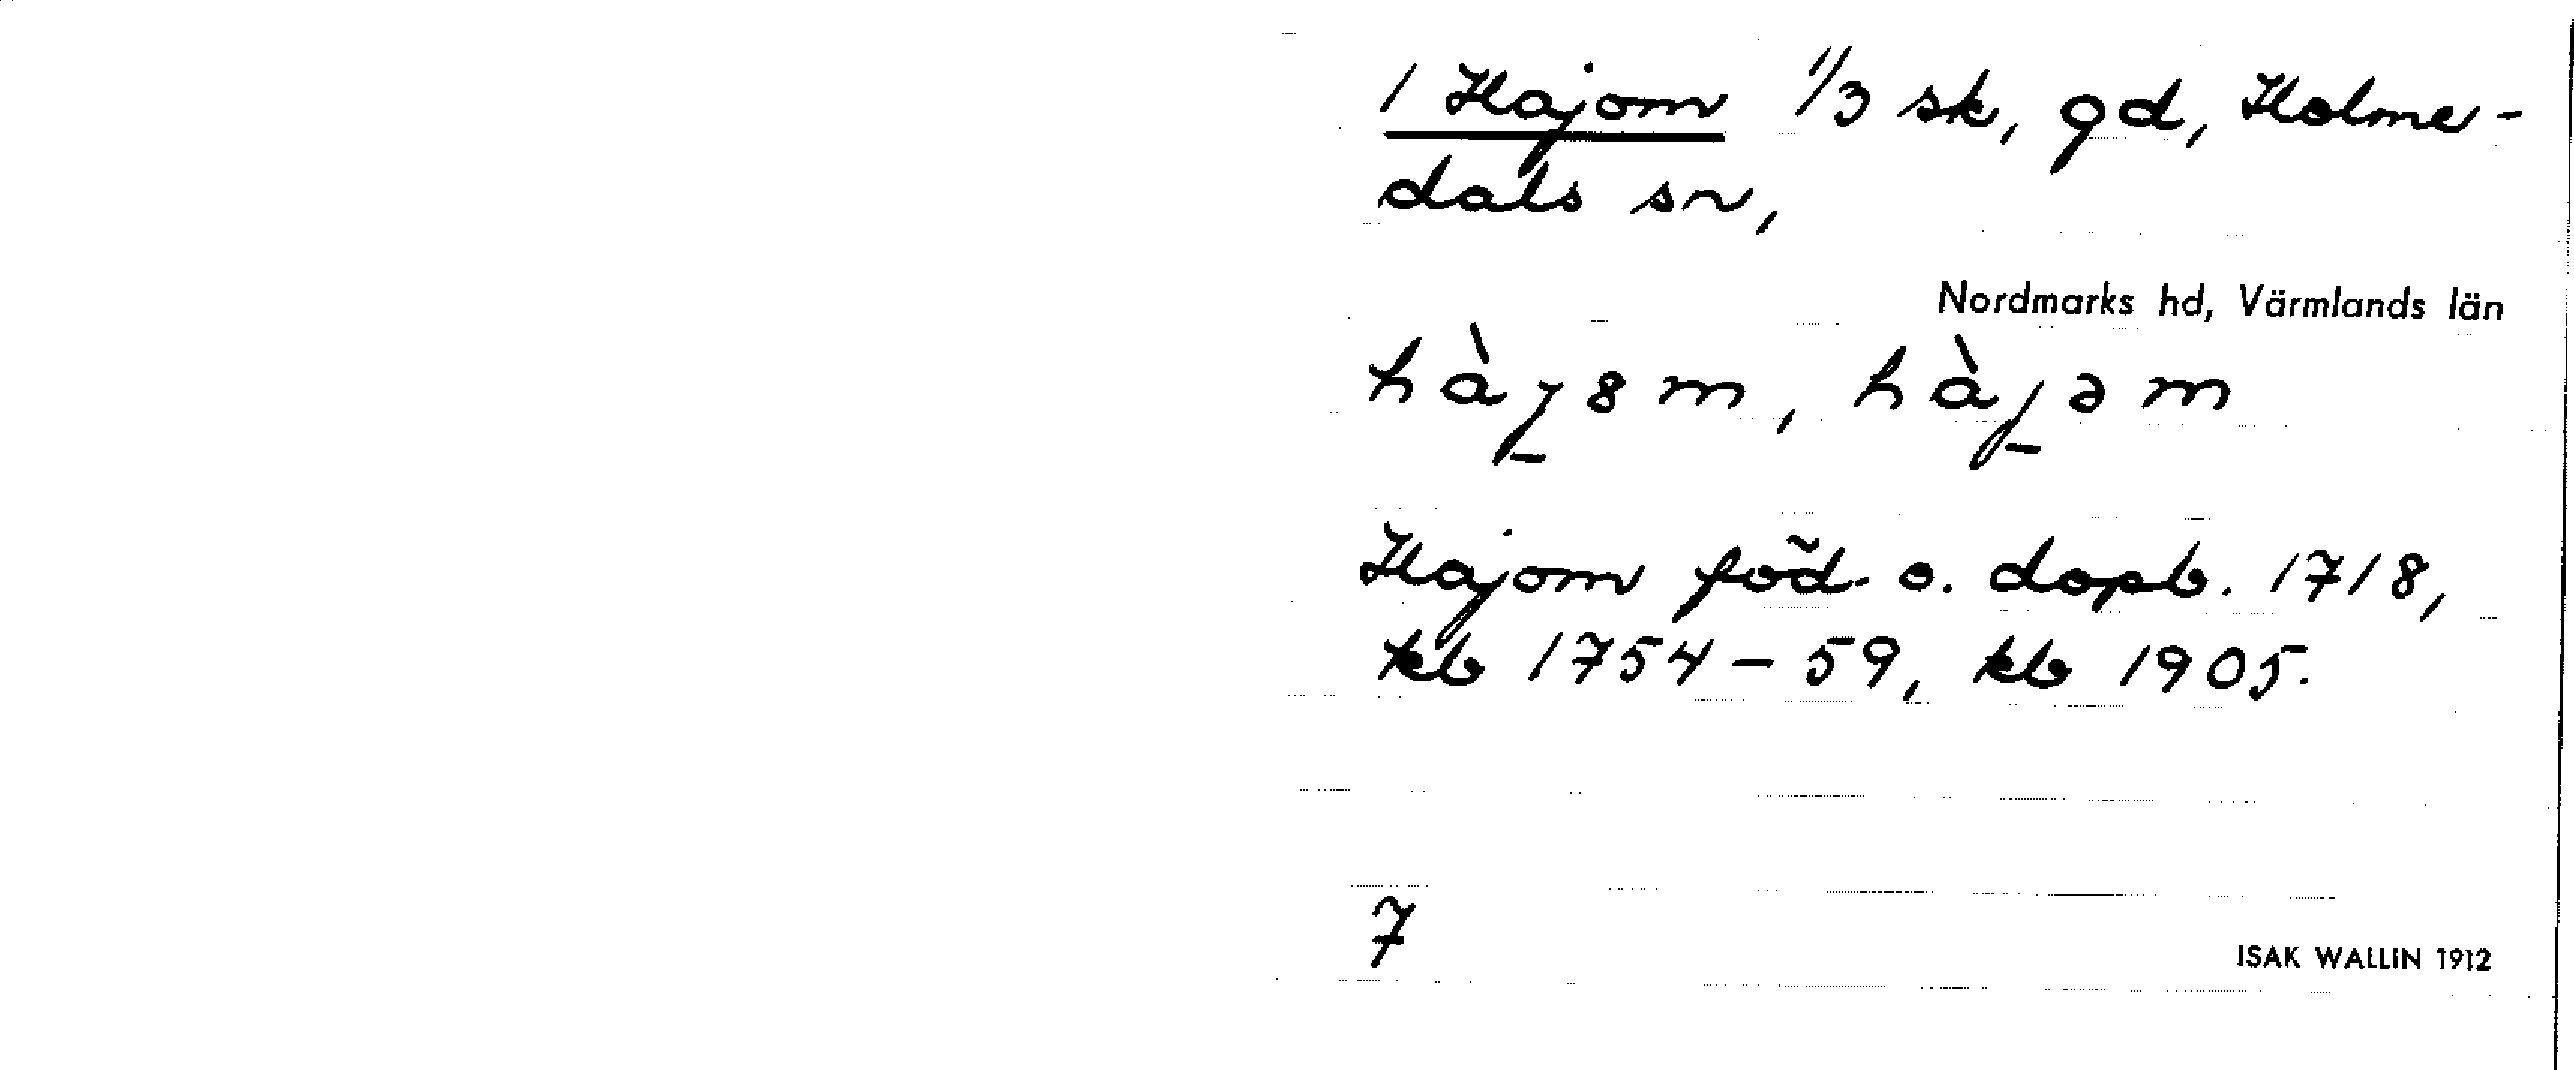 1 Hajom 1/3 sk, gd, Holme-
dals sn,
Nordmarks hd, Värmlands län
hàj8m, hàjəm
Hajom föd. o. dopb. 1718,
kb 1754-59, kb 1905.
7
ISAK WALLIN 1912